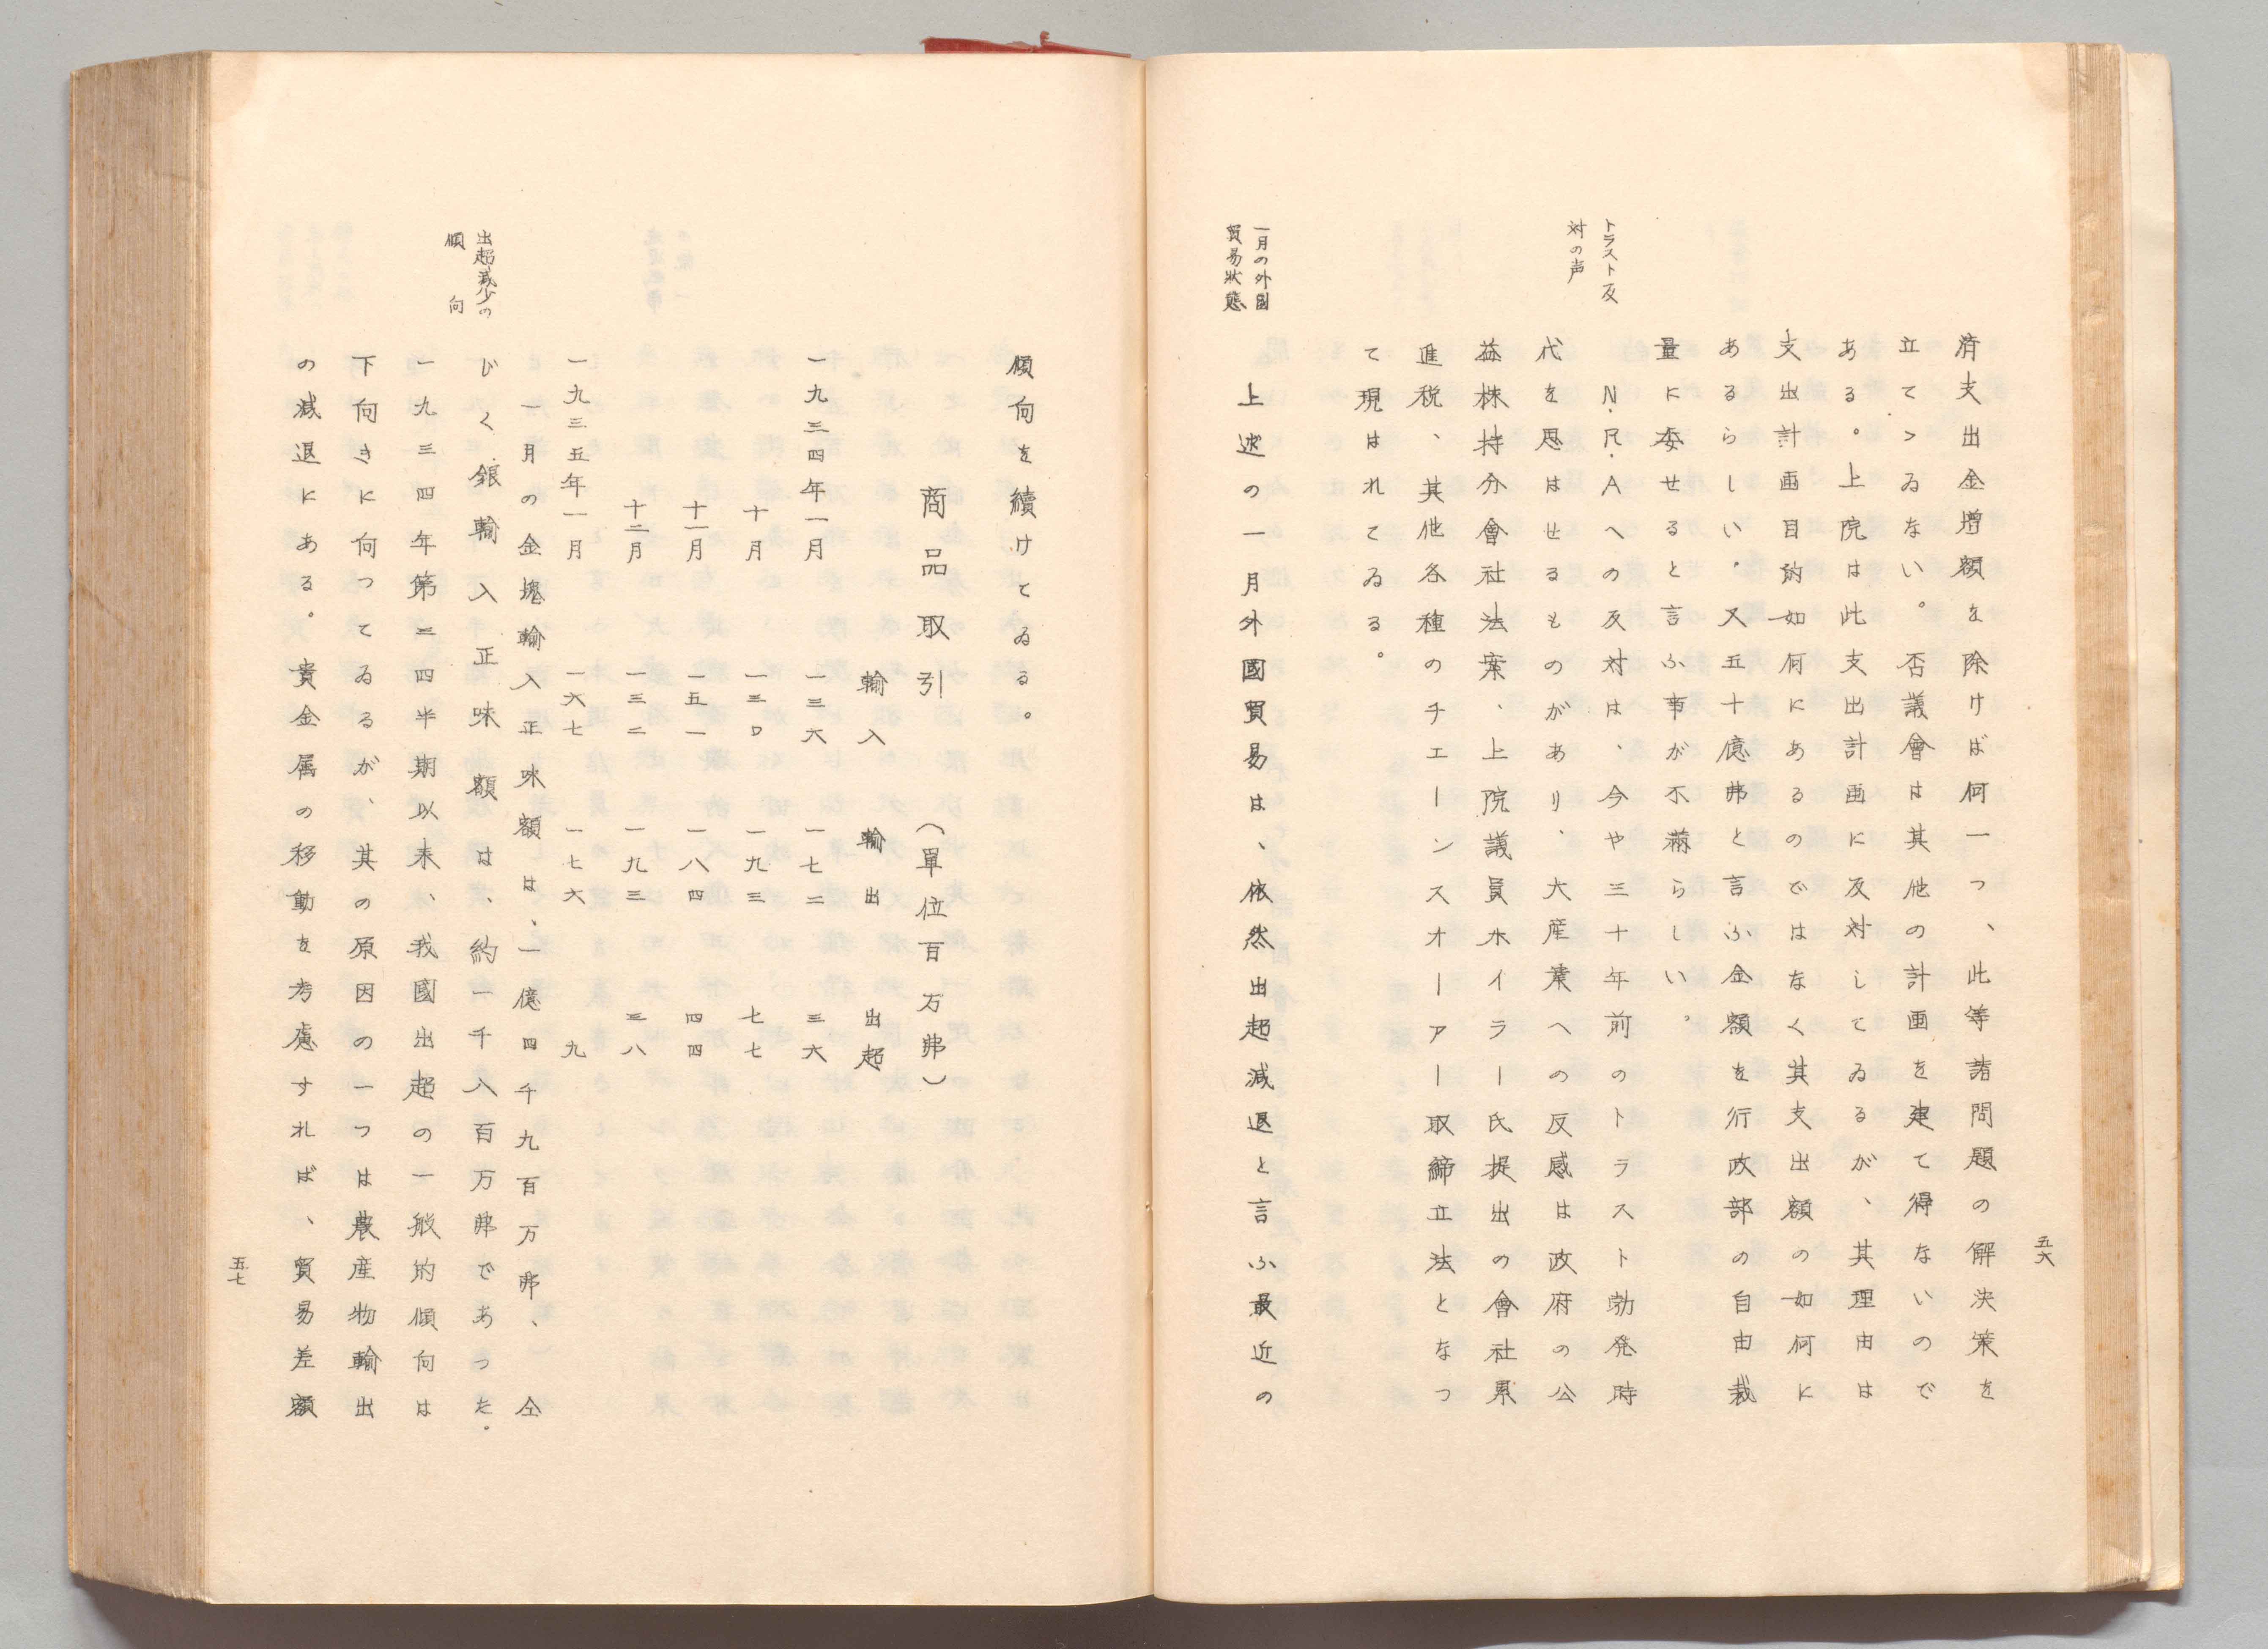 五六
済支出金増額を除けば何一つ、此等諸問題の解決策を
立てゝゐない。否議會は其他の計画を建て得ないので
ある。上院は此支出計画に反対してゐるが、其理由は
支出計画目的如何にあるのではなく其支出額の如何に
あるらしい。又五十億弗と言ふ金額を行政部の自由裁
量に委せると言ふ事が不満らしい。
トラスト反
対の声
N.R.Aへの反対は、今や三十年前のトラスト勃発時
代を思はせるものがあり、大産業への反感は政府の公
益株持分會社法案、上院議員ホイラー氏提出の會社累
進税、其他各種のチエーンスオーアー取締立法となつ
て現はれてゐる。
一月の外國
貿易狀態
上述の一月外國貿易は、依然出超減退と言ふ最近の
傾向を續けてゐる。
商品取引 (單位百万弗)
輸入 輸出 出超
一九三四年一月 一三六 一七二 三六
十月 一三〇 一九三 七七
十一月 一五一 一八四 四四
十二月 一三二 一九三 三八
一九三五年一月 一六七 一七六 九
一月の金塊輸入正味額は、一億四千九百万弗、仝
じく銀輸入正味額は、約一千八百万弗であつた。
出超減少の
傾向
一九三四年第三四半期以来、我國出超の一般的傾向は
下向きに向つてゐるが、其の原因の一つは農産物輸出
の減退にある。貴金属の移動を考慮すれば、貿易差額
五七